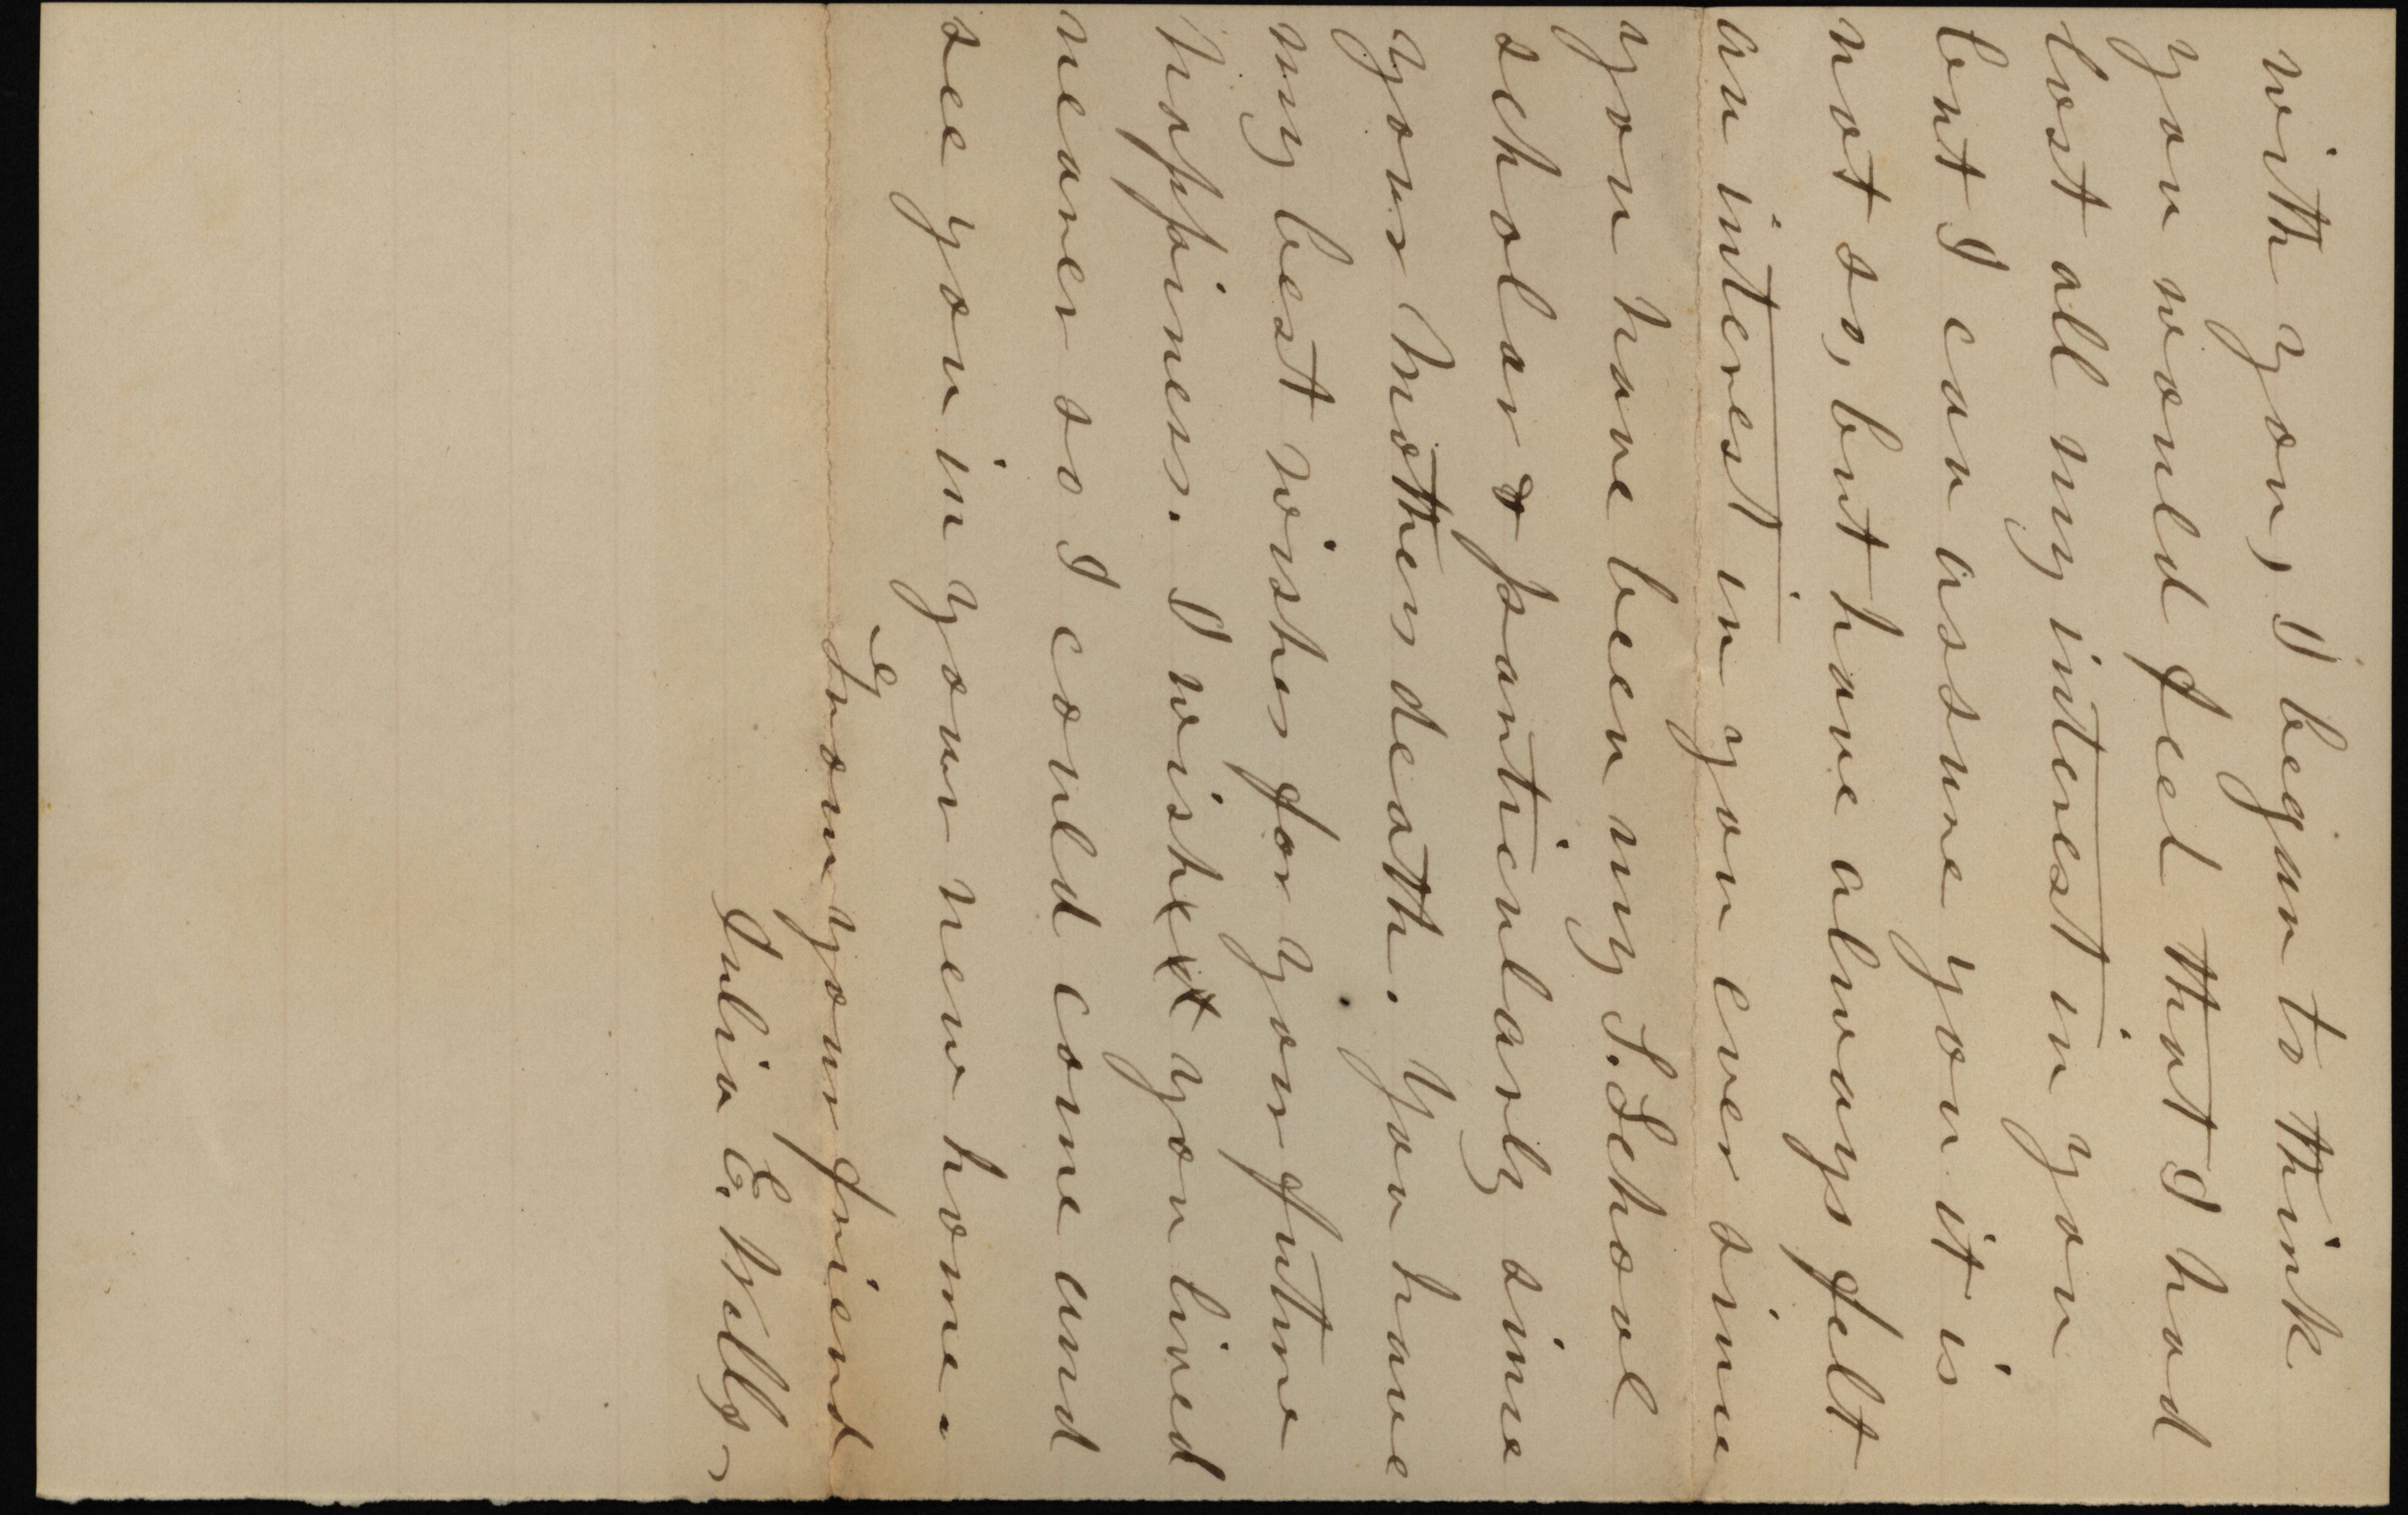 with you, I began to think
you would feel that I had
lost all my interest in you
but I can assure you it is
not so, but have always felt
an interest in you ever since
you have been my S. School
scholar & particularly since
your Mothers death. You have
my best wishes for your future
happiness. I wish you lived
nearer so I could come and
see you in your new home.
From your friend
Julia E. Wells